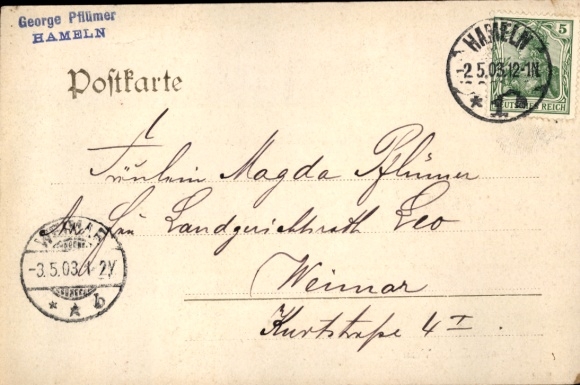 George Pflümer
HAMELN
HAMELN
5
-2.5.03.12-1N.
DEUTSCHES REICH
* 1
Postkarte
Fräulein Magda Pflümer
Landgerichtsrath Leo
Weimar
Kurtstraße 4 I
WEIMAR
-3.5.03.1-2V
* * b